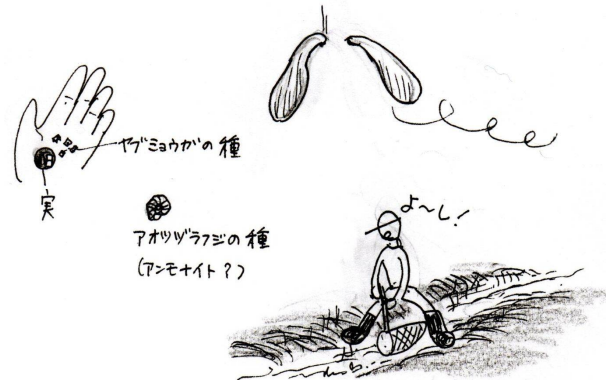 ヤブミョウガの種
実
アオツヅラフジの種
(アンモナイト?)
よ〜し!